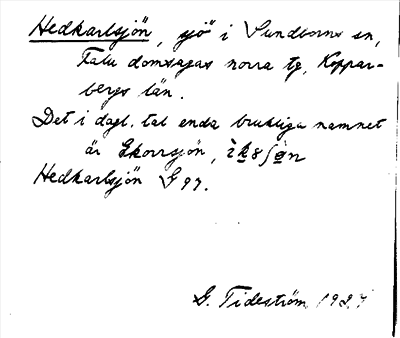 Hedkarlsjön, sjö i Sundborns sn,
Falu domsagas norra tg, Koppar-
bergs län.
Det i dagl. tal enda brukliga namnet
är Ekorrsjön,
Hedkarlsjön S 97.
G. Tideström